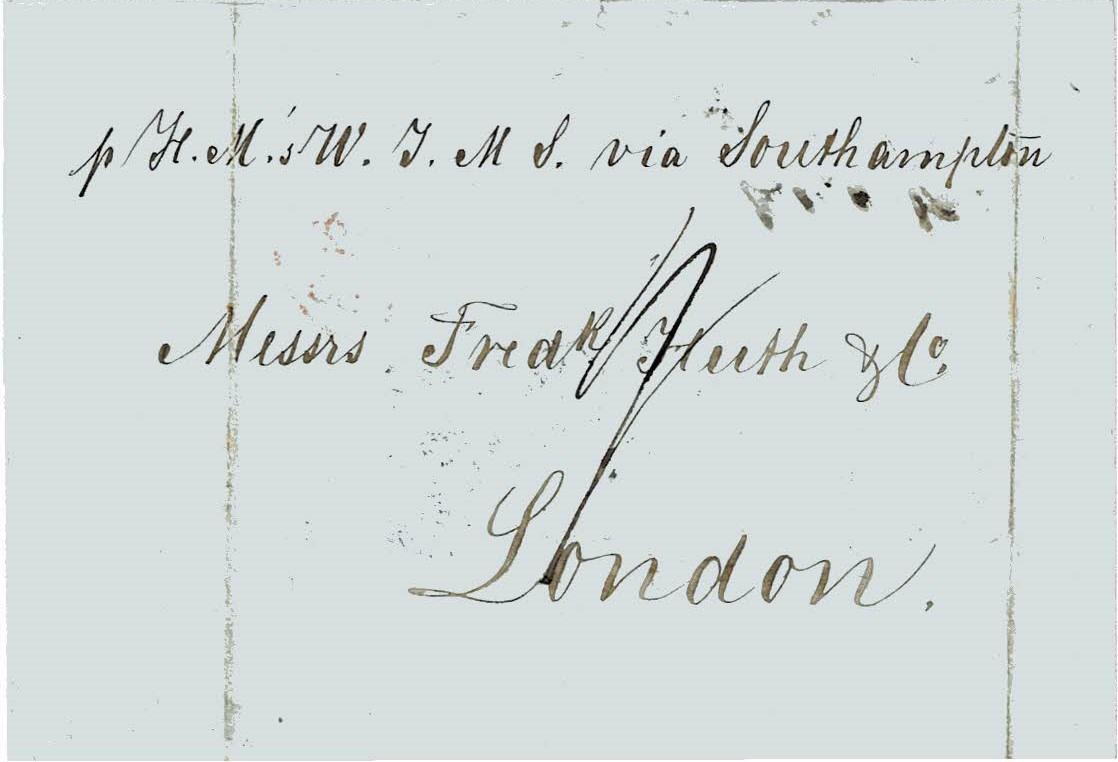 p H.M.'s W. I. M S. via Southampton
Messrs Fredk Huth & Co.
London.